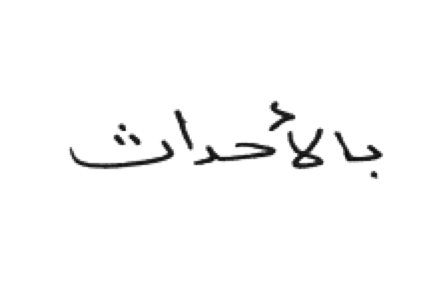 بالأحداث